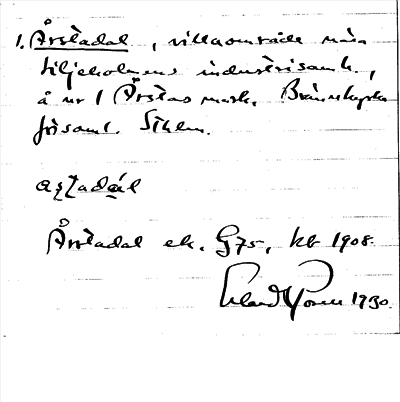 1. Årstadal, villaområde nära
Liljeholmens industrisamh.,
å nr 1 Årstas mark. Brännkyrka
församl. Sthlm.
Årstadal ek. G75, kb 1908.
Erland Rosell 1930.